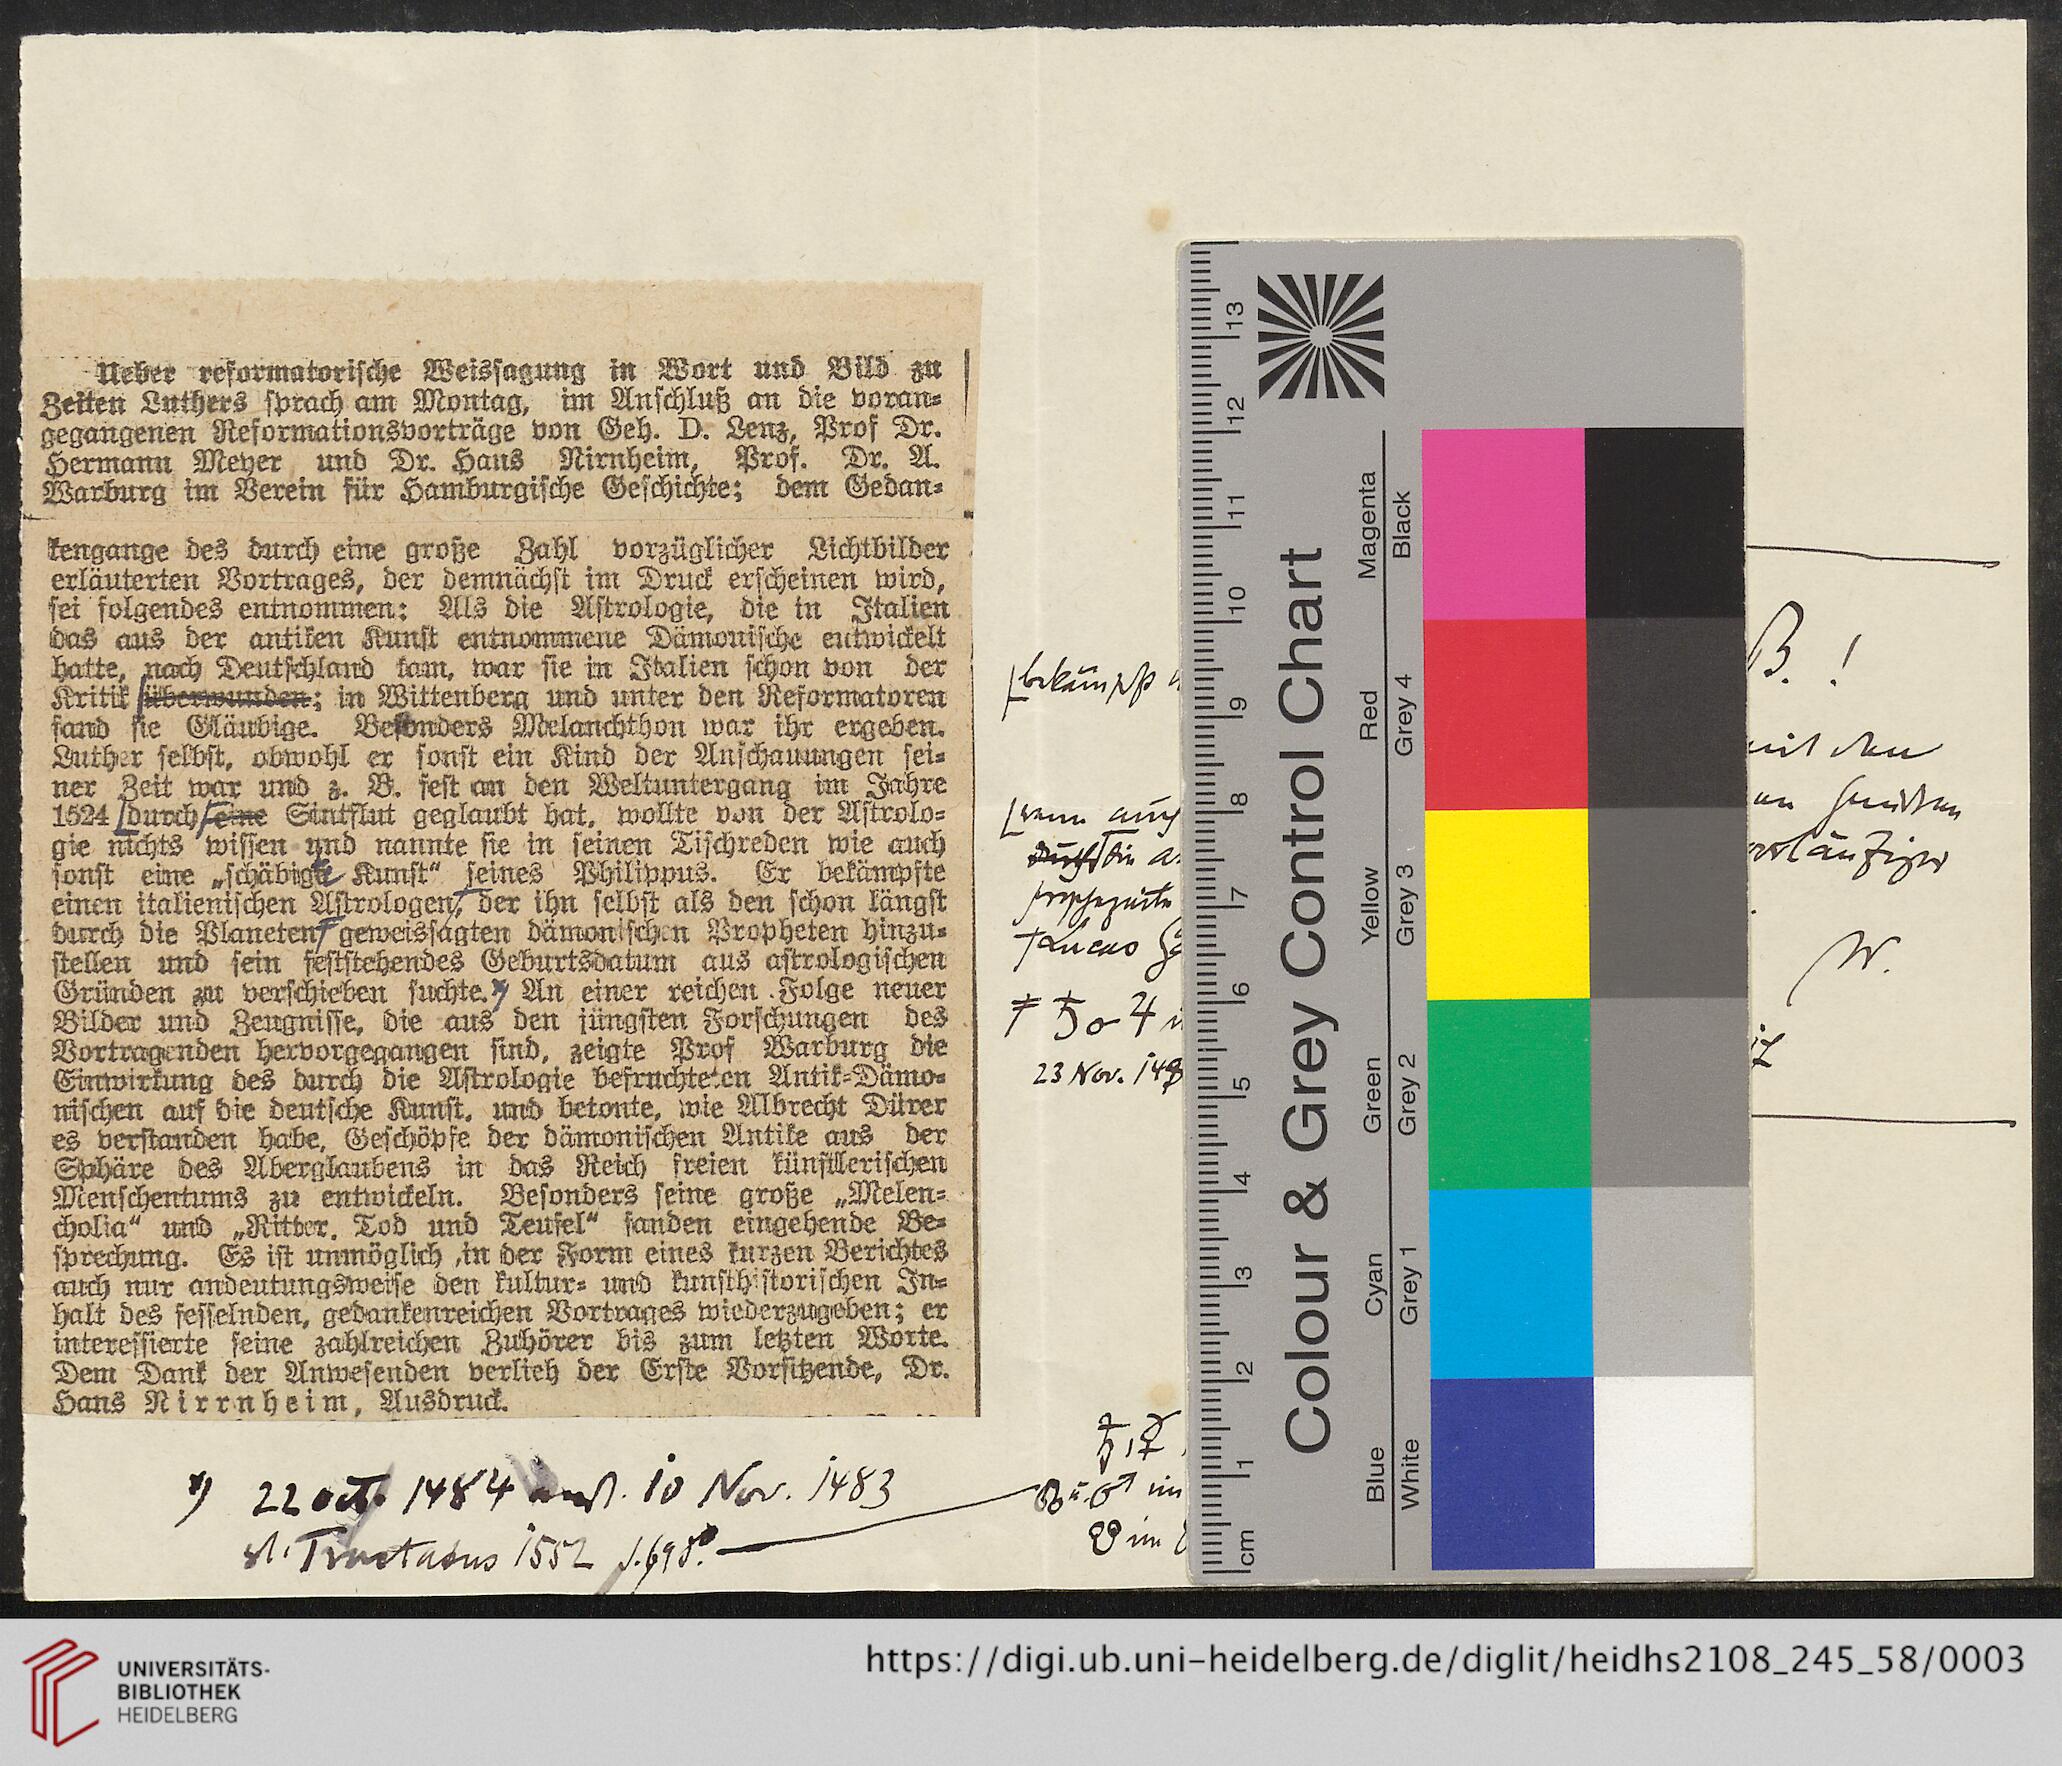 Ueber reformatorische Weissagung in Wort und Bild zu
Zeiten Luthers sprach am Montag, im Anschluß an die voran-
gegangenen Reformationsvorträge von Geh. D. Lenz, Prof Dr.
Hermann Meyer und Dr. Hans Nirnheim, Prof. Dr. A.
Warburg im Verein für Hamburgische Geschichte; dem Gedan-
kengange des durch eine große Zahl vorzüglicher Lichtbilder
erläuterten Vortrages, der demnächst im Druck erscheinen wird,
sei folgendes entnommen: Als die Astrologie, die in Italien
das aus der antiken Kunst entnommene Dämonische entwickelt
hatte, nach Deutschland kam, war sie in Italien schon von der
Kritik überwunden; in Wittenberg und unter den Reformatoren
fand sie Gläubige. Besonders Melanchthon war ihr ergeben.
Luther selbst, obwohl er sonst ein Kind der Anschauungen sei-
ner Zeit war und z. B. fest an den Weltuntergang im Jahre
1524 durch eine Sintflut geglaubt hat, wollte von der Astrolo-
gie nichts wissen und nannte sie in seinen Tischreden wie auch
sonst eine „schäbigte Kunst“ seines Philippus. Er bekämpfte
einen italienischen Astrologen, der ihn selbst als den schon längst
durch die Planeten geweissagten dämonischen Propheten hinzu-
stellen und sein feststehendes Geburtsdatum aus astrologischen
Gründen zu verschieben suchte.*) An einer reichen Folge neuer
Bilder und Zeugnisse, die aus den jüngsten Forschungen des
Vortragenden hervorgegangen sind, zeigte Prof Warburg die
Einwirkung des durch die Astrologie befruchteten Antik-Dämo-
nischen auf die deutsche Kunst, und betonte, wie Albrecht Dürer
es verstanden habe, Geschöpfe der dämonischen Antike aus der
Sphäre des Aberglaubens in das Reich freien künstlerischen
Menschentums zu entwickeln. Besonders seine große „Melen-
cholia“ und „Ritter, Tod und Teufel“ fanden eingehende Be-
sprechung. Es ist unmöglich ,in der Form eines kurzen Berichtes
auch nur andeutungsweise den kultur- und kunsthistorischen In-
halt des fesselnden, gedankenreichen Vortrages wiederzugeben; er
interessierte seine zahlreichen Zuhörer bis zum letzten Worte.
Dem Dank der Anwesenden verlieh der Erste Vorsitzende, Dr.
Hans Nirrnheim, Ausdruck.
*) 22 oct. 1484 anst. 10 Nov. 1483
Tractatus 1552
bekämpft
wenn auch
die
prophezeite
Lucas
♄ ☌ ♃
23 Nov. 148
♄, ☿
☊ u. ♂ im
☋ im
B. !
mit den
vorläufiger
W.
Colour & Grey Control Chart
Blue Cyan Green Yellow Red Magenta
White Grey 1 Grey 2 Grey 3 Grey 4 Black
cm 1 2 3 4 5 6 7 8 9 10 11 12 13
UNIVERSITÄTS-
BIBLIOTHEK
HEIDELBERG
https://digi.ub.uni-heidelberg.de/diglit/heidhs2108_245_58/0003